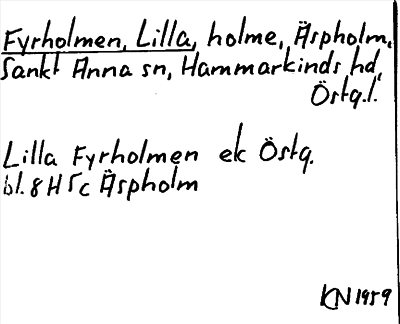 Fyrholmen, Lilla, holme, Äspholm,
Sankt Anna sn, Hammarkinds hd,
Östg.l.
Lilla Fyrholmen ek Östg.
bl. 8H5c Äspholm
KN 1959